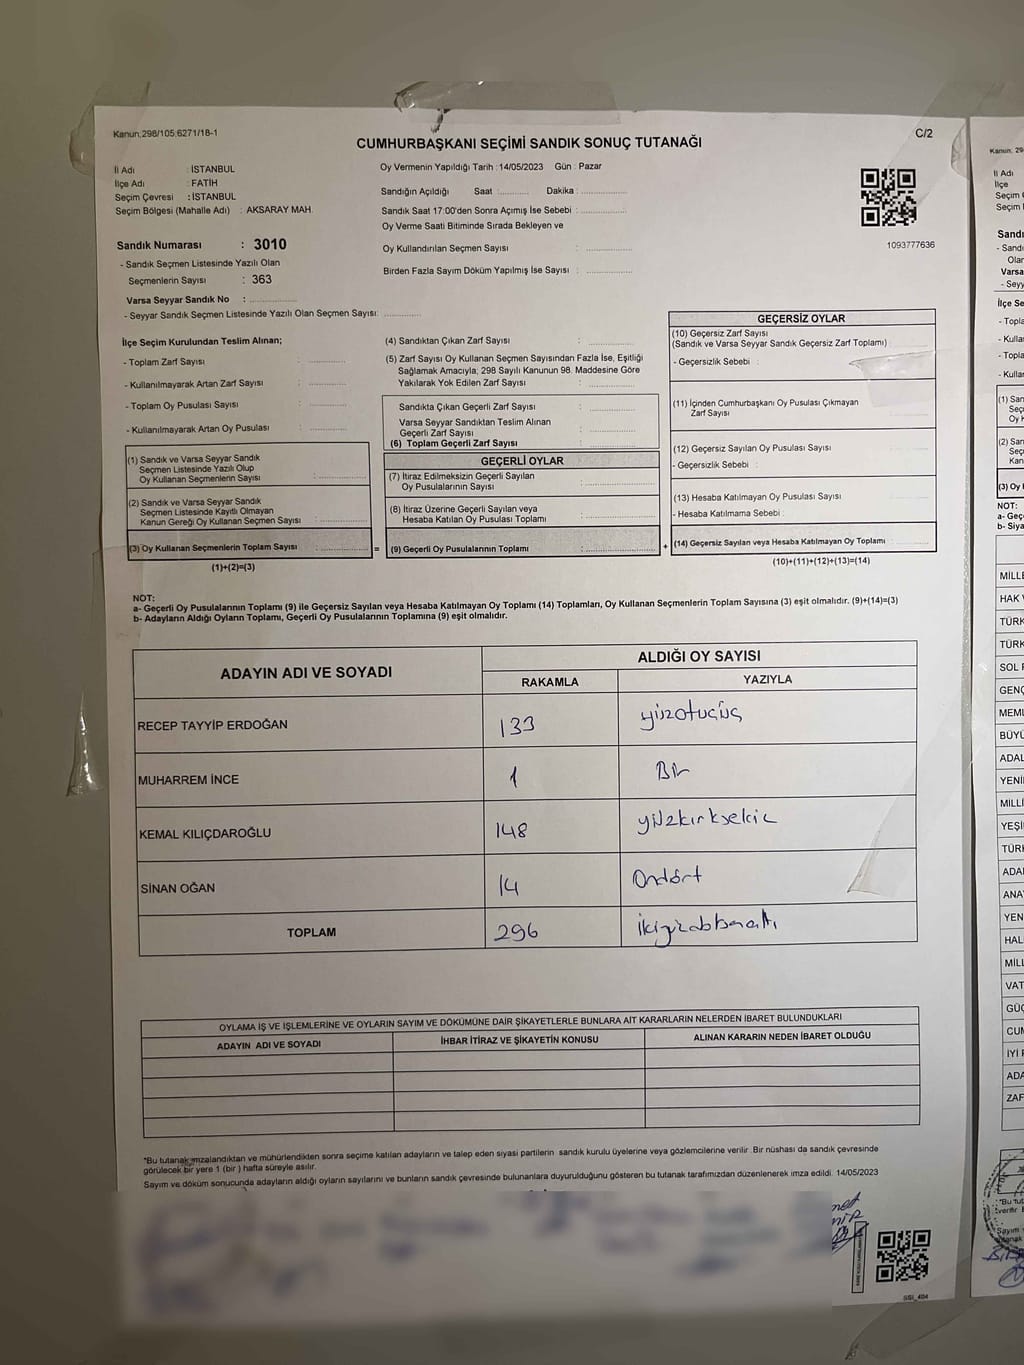 Kanun;298/105,6271/18-1
C/2
CUMHURBAŞKANI SEÇİMİ SANDIK SONUÇ TUTANAĞI
İl Adı : İSTANBUL
İlçe Adı : FATİH
Seçim Çevresi : İSTANBUL
Seçim Bölgesi (Mahalle Adı) : AKSARAY MAH.
Sandık Numarası : 3010
- Sandık Seçmen Listesinde Yazılı Olan
Seçmenlerin Sayısı : 363
Varsa Seyyar Sandık No :
- Seyyar Sandık Seçmen Listesinde Yazılı Olan Seçmen Sayısı:
Oy Vermenin Yapıldığı Tarih :14/05/2023 Gün : Pazar
Sandığın Açıldığı Saat : Dakika :
Sandık Saat 17:00'den Sonra Açımış İse Sebebi :
Oy Verme Saati Bitiminde Sırada Bekleyen ve
Oy Kullandırılan Seçmen Sayısı :
Birden Fazla Sayım Döküm Yapılmış İse Sayısı :
1093777636
İlçe Seçim Kurulundan Teslim Alınan;
- Toplam Zarf Sayısı :
- Kullanılmayarak Artan Zarf Sayısı :
- Toplam Oy Pusulası Sayısı :
- Kullanılmayarak Artan Oy Pusulası :
(1) Sandık ve Varsa Seyyar Sandık
Seçmen Listesinde Yazılı Olup
Oy Kullanan Seçmenlerin Sayısı :
(2) Sandık ve Varsa Seyyar Sandık
Seçmen Listesinde Kayıtlı Olmayan
Kanun Gereği Oy Kullanan Seçmen Sayısı :
(3) Oy Kullanan Seçmenlerin Toplam Sayısı :
(1)+(2)=(3)
(4) Sandıktan Çıkan Zarf Sayısı :
(5) Zarf Sayısı Oy Kullanan Seçmen Sayısından Fazla İse, Eşitliği
Sağlamak Amacıyla; 298 Sayılı Kanunun 98. Maddesine Göre
Yakılarak Yok Edilen Zarf Sayısı :
Sandıkta Çıkan Geçerli Zarf Sayısı :
Varsa Seyyar Sandıktan Teslim Alınan
Geçerli Zarf Sayısı :
(6) Toplam Geçerli Zarf Sayısı :
GEÇERLİ OYLAR
(7) İtiraz Edilmeksizin Geçerli Sayılan
Oy Pusulalarının Sayısı :
(8) İtiraz Üzerine Geçerli Sayılan veya
Hesaba Katılan Oy Pusulası Toplamı :
= (9) Geçerli Oy Pusulalarının Toplamı :
GEÇERSİZ OYLAR
(10) Geçersiz Zarf Sayısı
(Sandık ve Varsa Seyyar Sandık Geçersiz Zarf Toplamı)
- Geçersizlik Sebebi :
(11) İçinden Cumhurbaşkanı Oy Pusulası Çıkmayan
Zarf Sayısı
(12) Geçersiz Sayılan Oy Pusulası Sayısı
- Geçersizlik Sebebi :
(13) Hesaba Katılmayan Oy Pusulası Sayısı
- Hesaba Katılmama Sebebi :
+ (14) Geçersiz Sayılan veya Hesaba Katılmayan Oy Toplamı :
(10)+(11)+(12)+(13)=(14)
NOT:
a- Geçerli Oy Pusulalarının Toplamı (9) ile Geçersiz Sayılan veya Hesaba Katılmayan Oy Toplamı (14) Toplamları, Oy Kullanan Seçmenlerin Toplam Sayısına (3) eşit olmalıdır. (9)+(14)=(3)
b- Adayların Aldığı Oyların Toplamı, Geçerli Oy Pusulalarının Toplamına (9) eşit olmalıdır.
ADAYIN ADI VE SOYADI
ALDIĞI OY SAYISI
RAKAMLA YAZIYLA
RECEP TAYYİP ERDOĞAN 133 yüzotuzüç
MUHARREM İNCE 1 Bir
KEMAL KILIÇDAROĞLU 148 yüzkırksekiz
SİNAN OĞAN 14 Ondört
TOPLAM 296 ikiyüzdoksanaltı
OYLAMA İŞ VE İŞLEMLERİNE VE OYLARIN SAYIM VE DÖKÜMÜNE DAİR ŞİKAYETLERLE BUNLARA AİT KARARLARIN NELERDEN İBARET BULUNDUKLARI
ADAYIN ADI VE SOYADI İHBAR İTİRAZ VE ŞİKAYETİN KONUSU ALINAN KARARIN NEDEN İBARET OLDUĞU
*Bu tutanak imzalandıktan ve mühürlendikten sonra seçime katılan adayların ve talep eden siyasi partilerin sandık kurulu üyelerine veya gözlemcilerine verilir. Bir nüshası da sandık çevresinde
görülecek bir yere 1 (bir) hafta süreyle asılır.
Sayım ve döküm sonucunda adayların aldığı oyların sayılarını ve bunların sandık çevresinde bulunanlara duyurulduğunu gösteren bu tutanak tarafımızdan düzenlenerek imza edildi. 14/05/2023